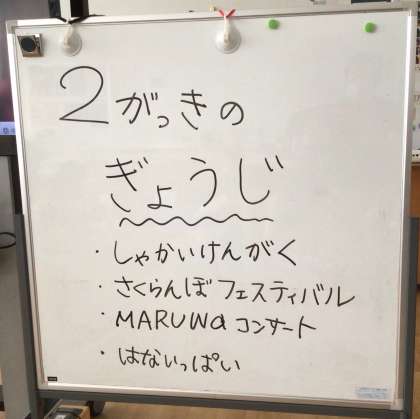 2がっきの
ぎょうじ
・しゃかいけんがく
・さくらんぼフェスティバル
・MARUWaコンサート
・はないっぱい